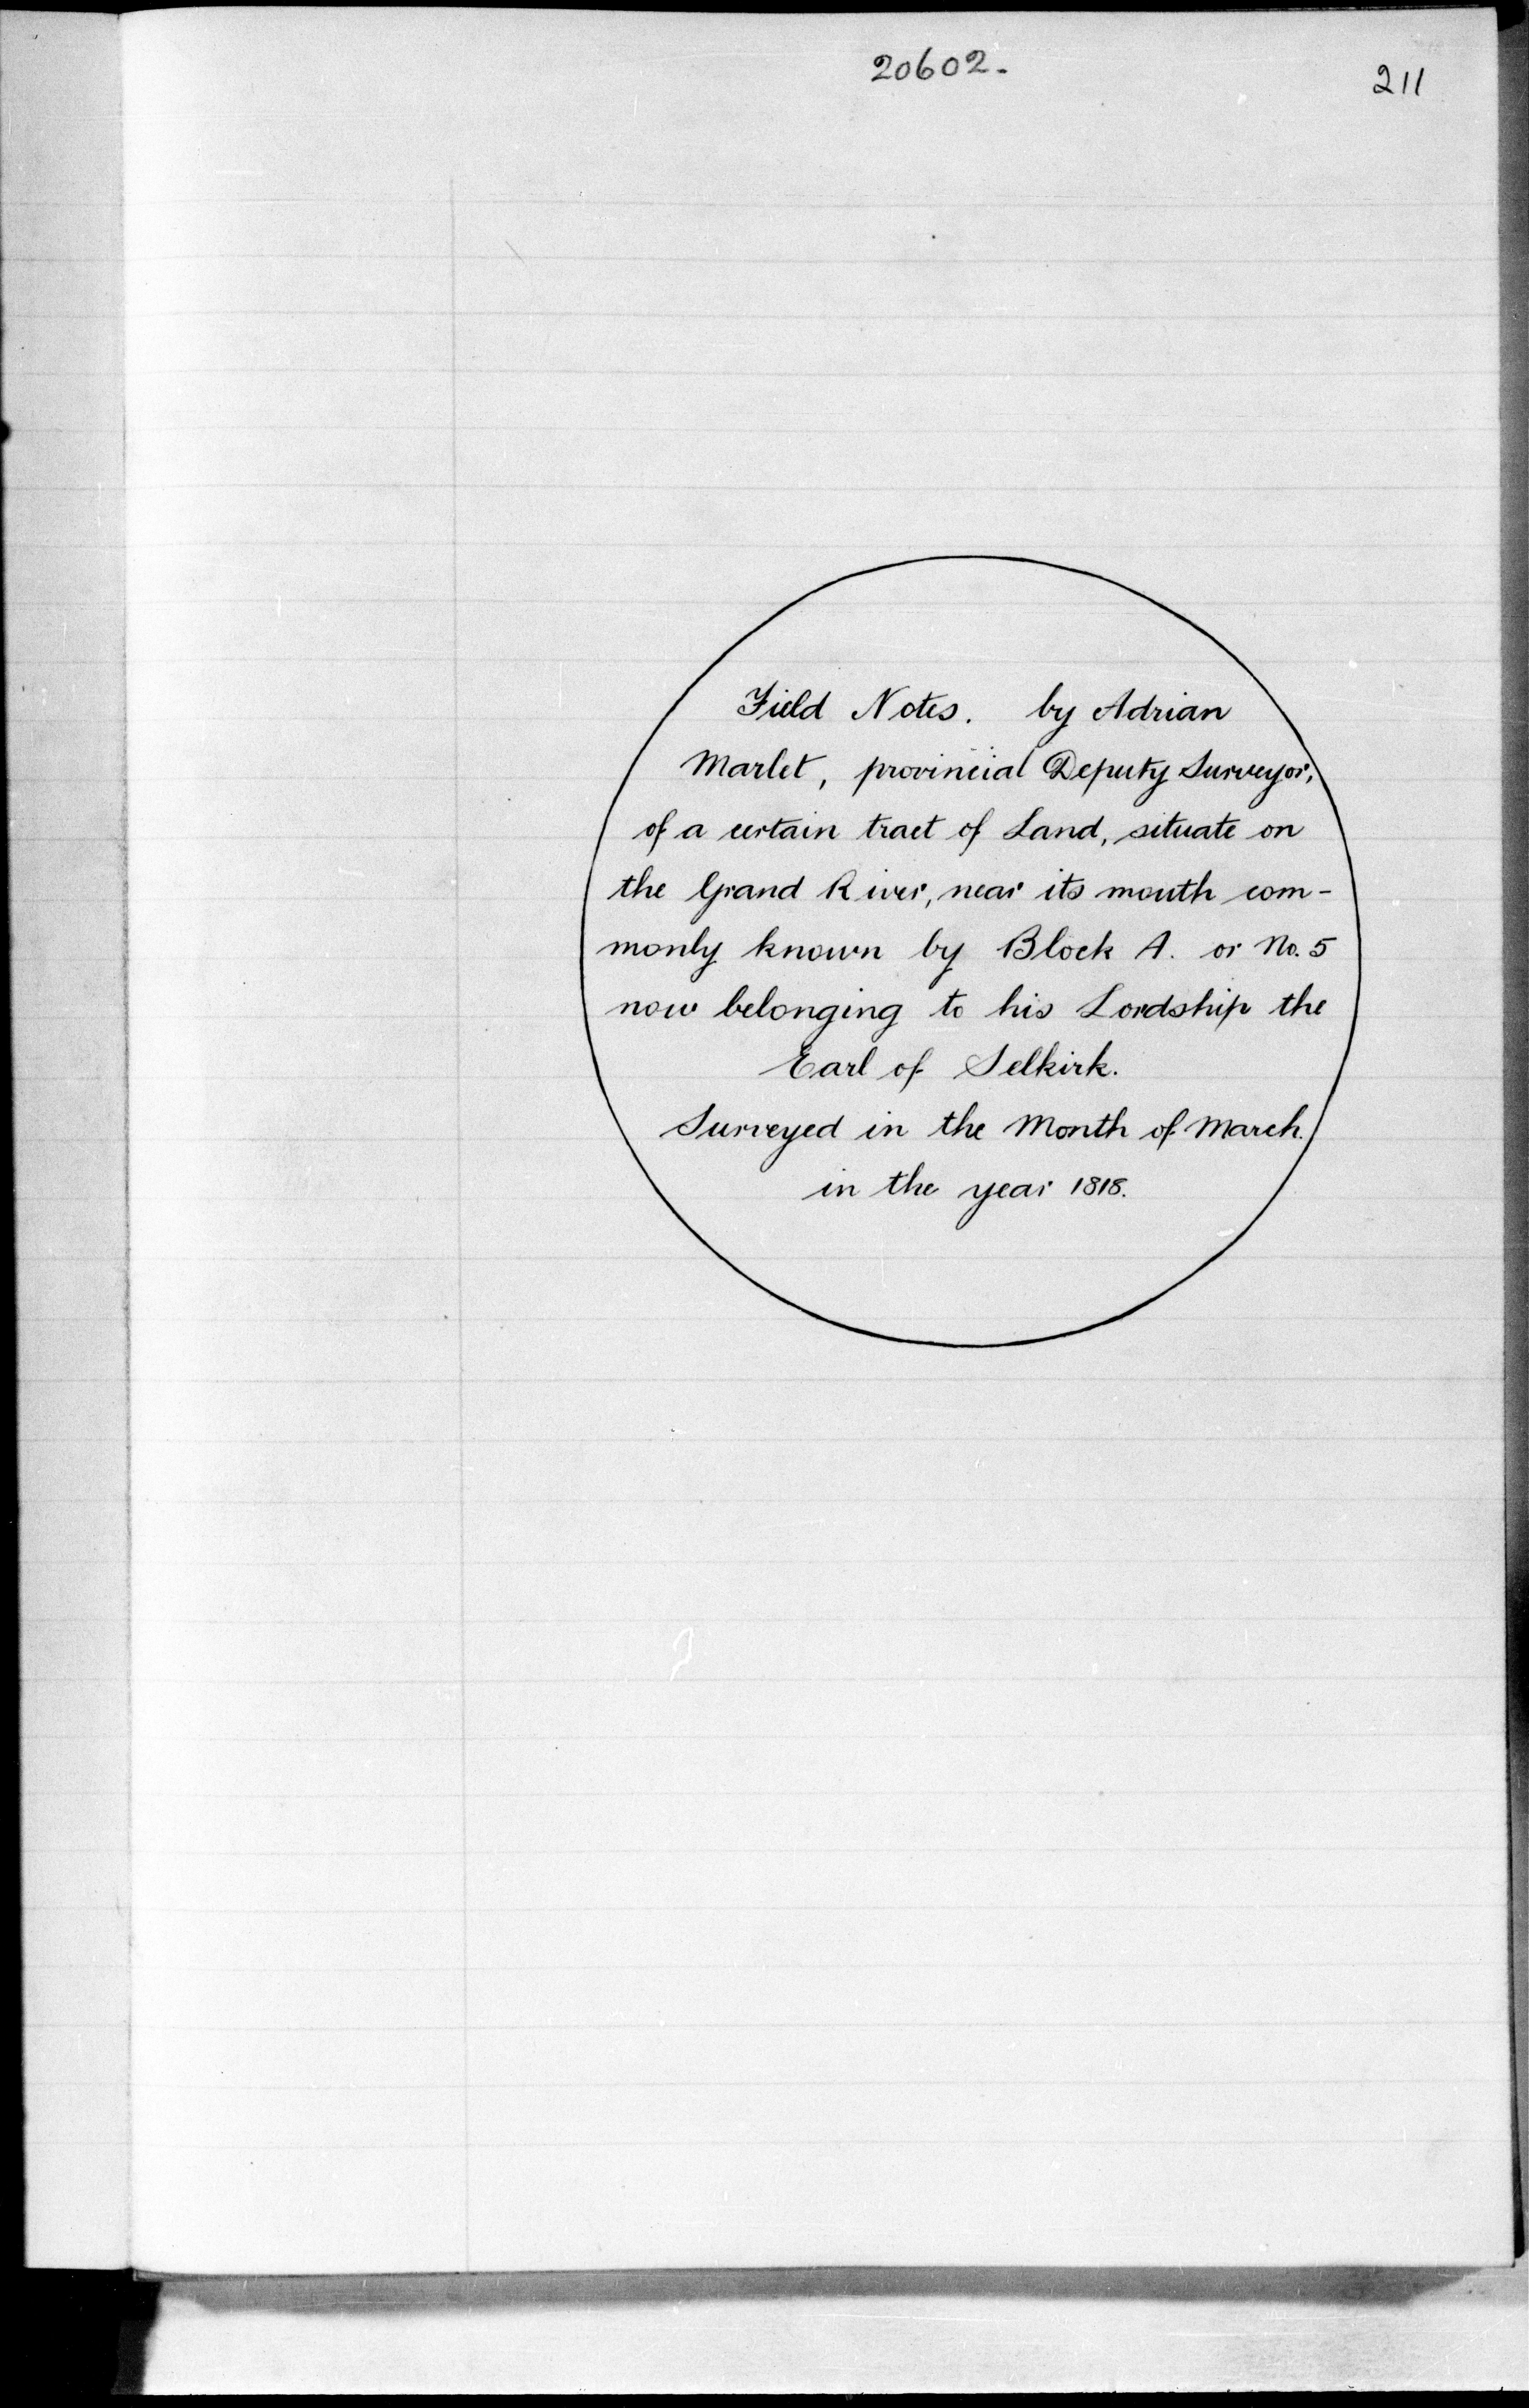 20602.
211
Field Notes. by Adrian
Marlet, provincial Deputy Surveyor,
of a certain tract of Land, situate on
the Grand River, near its mouth com-
monly known by Block A. or No. 5
now belonging to his Lordship the
Earl of Selkirk.
Surveyed in the Month of March.
in the year 1818.